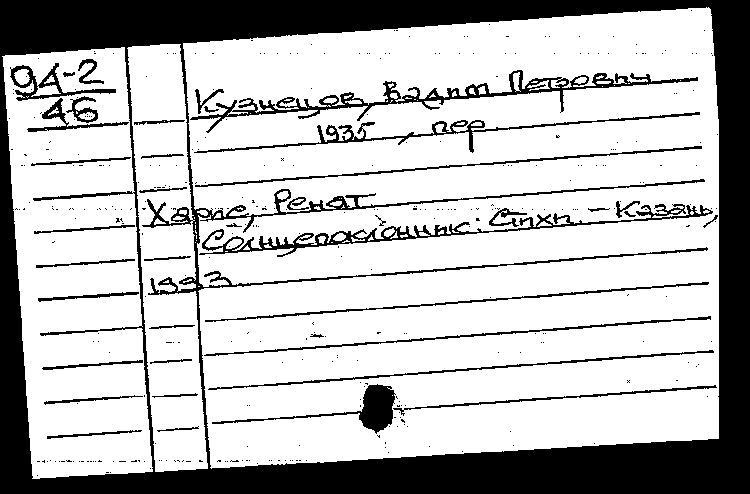 94-2
46
Кузнецов, Вадим Петрович
1935 , пер
Харис, Ренат
Солнцепоклонник: Стихи. - Казань,
1993